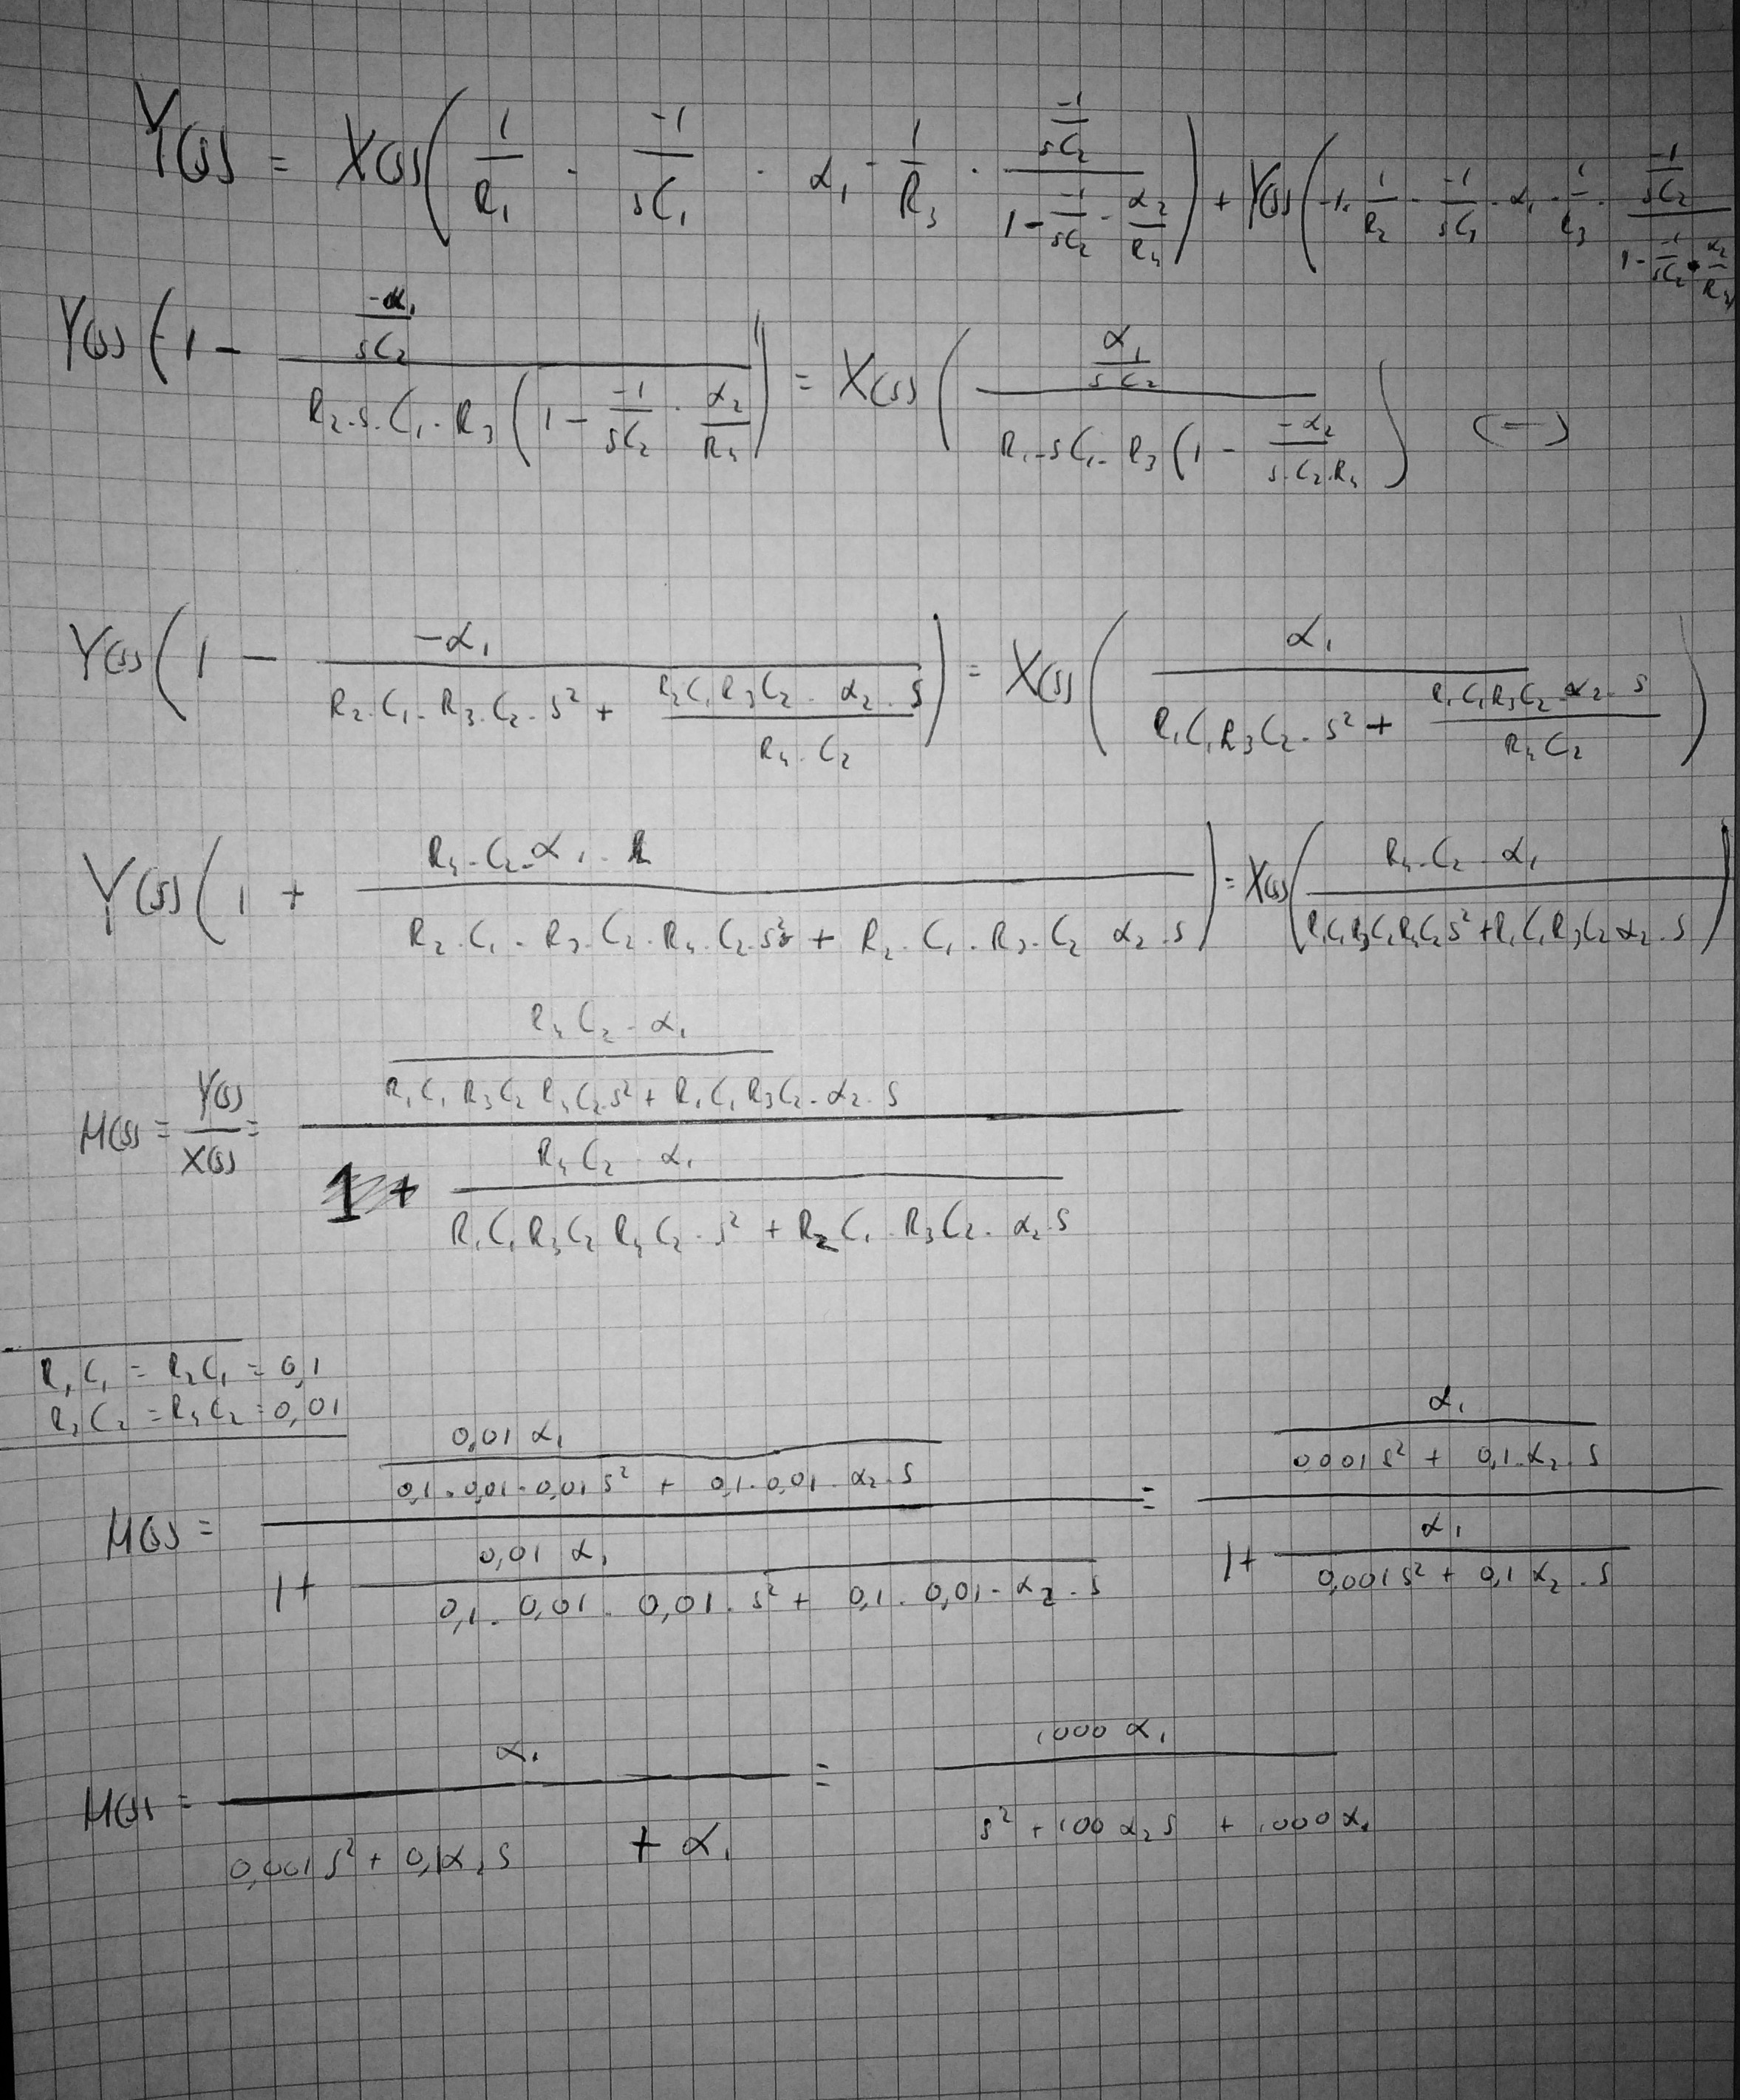 Y(s) = X(s) ( 1/R₁ · (-1/sC₁) · α₁ · 1/R₃ · (-1/sC₂)/(1 - (-1/sC₂) · α₂/R₄) ) + Y(s) ( -1 · 1/R₂ · (-1/sC₁) · α₁ · 1/R₃ · (-1/sC₂)/(1 - (-1/sC₂) · α₂/R₄)
Y(s) ( 1 - (-α₁/sC₂)/(R₂·s·C₁·R₃ (1 - (-1/sC₂) · α₂/R₄) ) = X(s) ( (α₁/sC₂)/(R₁·sC₁·R₃ (1 - (-α₂)/(s·C₂·R₄)) ) (-)
Y(s) ( 1 - (-α₁)/(R₂·C₁·R₃·C₂·s² + (R₂C₁R₃C₂·α₂·s)/(R₄·C₂)) ) = X(s) ( α₁/(R₁C₁R₃C₂·s² + (R₁C₁R₃C₂·α₂·s)/(R₄C₂)) )
Y(s) ( 1 + (R₄·C₂·α₁)/(R₂·C₁·R₃·C₂·R₄·C₂·s² + R₂·C₁·R₃·C₂ α₂·s) ) = X(s) ( (R₄·C₂·α₁)/(R₁C₁R₃C₂R₄C₂s² + R₁C₁R₃C₂α₂·s) )
H(s) = Y(s)/X(s) = ( (R₄C₂·α₁)/(R₁C₁R₃C₂R₄C₂s² + R₁C₁R₃C₂·α₂·s) ) / ( 1 + (R₄C₂·α₁)/(R₁C₁R₃C₂R₄C₂·s² + R₂C₁·R₃C₂·α₂s) )
R₁C₁ = R₂C₁ = 0,1
R₃C₂ = R₄C₂ = 0,01
H(s) = ( (0,01 α₁)/(0,1·0,01·0,01 s² + 0,1·0,01·α₂·s) ) / ( 1 + (0,01 α₁)/(0,1·0,01·0,01·s² + 0,1·0,01·α₂·s) ) = ( α₁/(0,001s² + 0,1·α₂·s) ) / ( 1 + α₁/(0,001s² + 0,1 α₂·s) )
H(s) = α₁/(0,001s² + 0,1α₂s + α₁) = 1000 α₁/(s² + 100 α₂s + 1000 α₁)